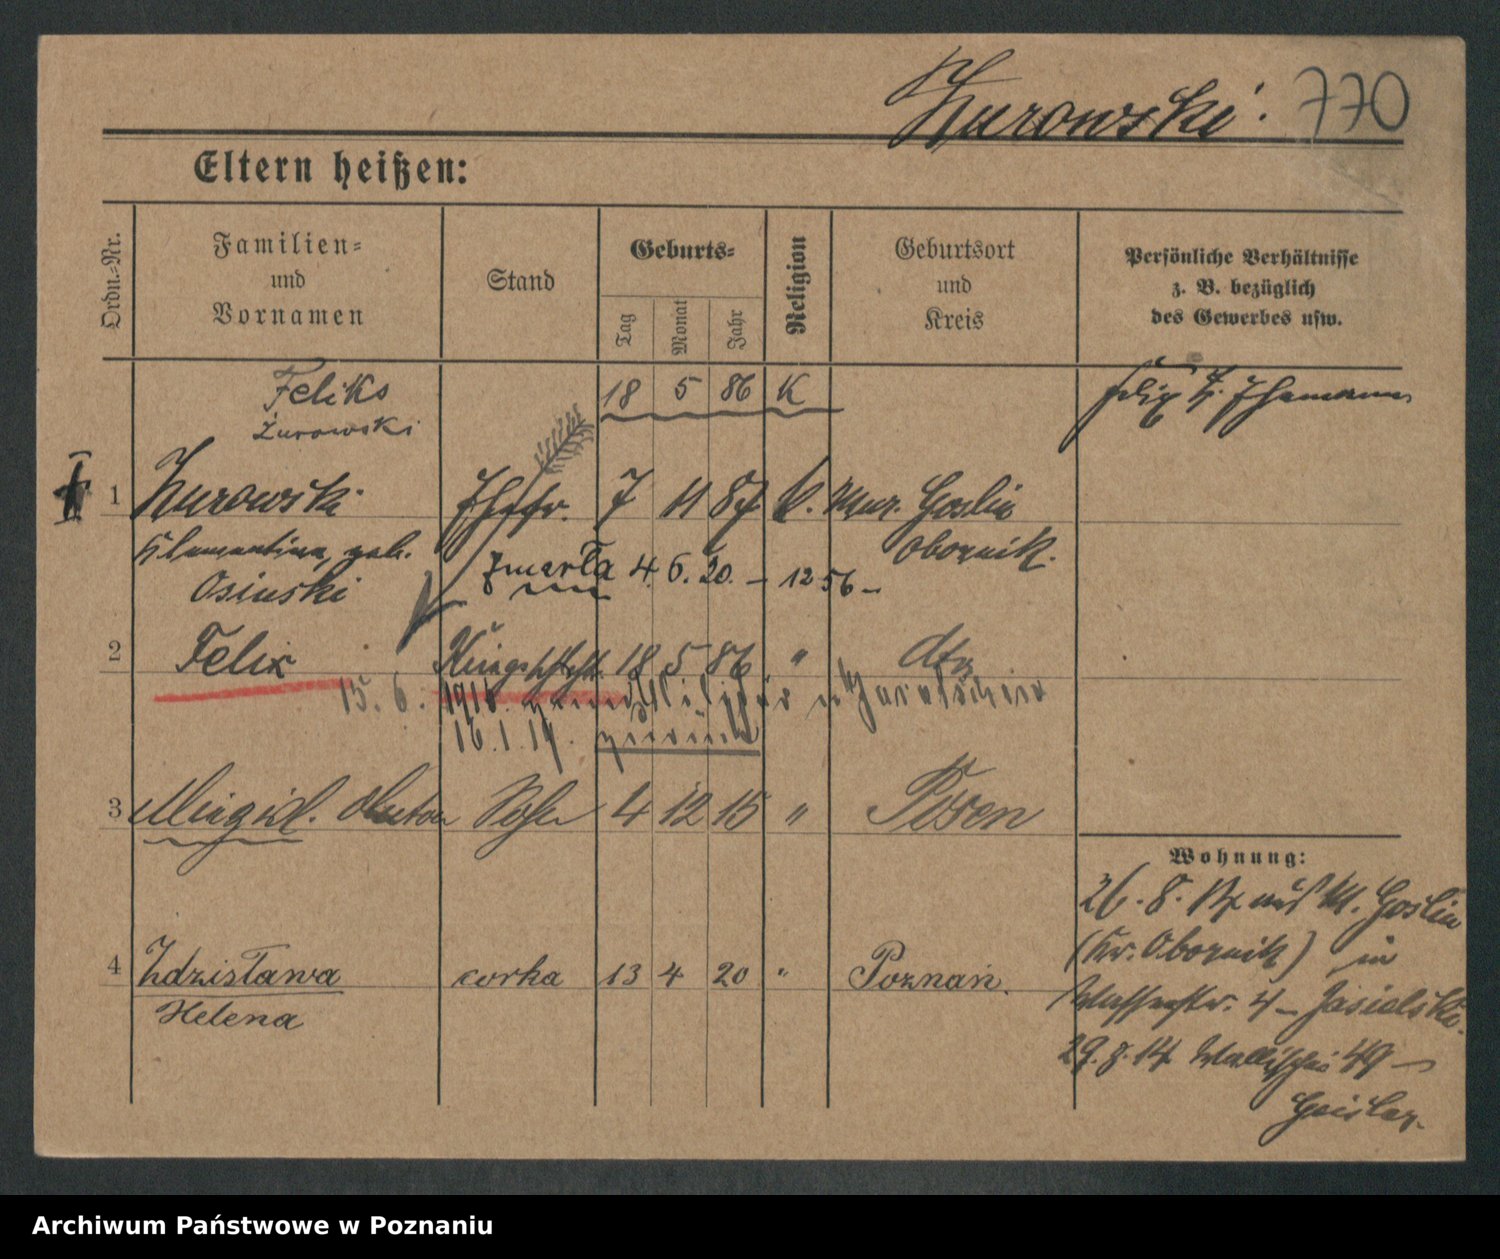 Zurowski. 770
Eltern heißen:
Ordn.=Nr.
Familien=
und
Vornamen
Stand
Geburts=
Tag
Monat
Jahr
Religion
Geburtsort
und
Kreis
Persönliche Verhältnisse
z. B. bezüglich
des Gewerbes usw.
Feliks 18 5 86 K
Żurowski
1 Zurowski Ehefr. 7 11 87 k. Mur. Goslin
Klementina, geb. Obornik.
Osinski zmarła 4. 6. 20. – 1256 –
2 Felix 18 5 86 " dto
15. 6. 1916.
16. 1. 19. zurück
3 Sohn 4 12 15 " Posen
4 Zdzisława córka 13 4 20 " Poznań.
Helena
Wohnung:
26. 8. aus M. Goslin
(Kr. Obornik) in
4 – Jasielski.
29. 8. 14 Wallischei 49 –
Archiwum Państwowe w Poznaniu